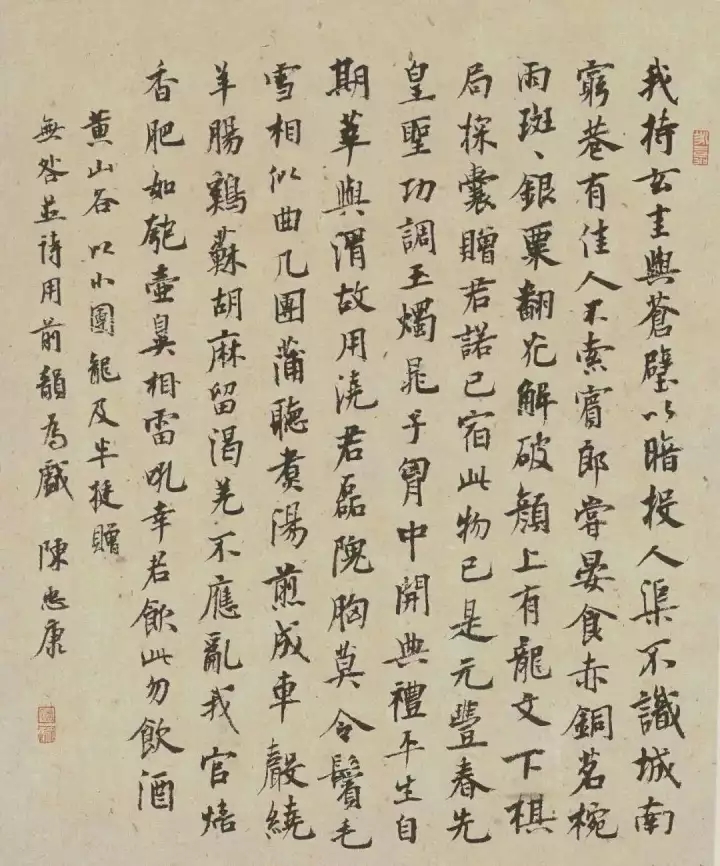 我持玄圭與蒼璧以暗投人渠不識城南
窮巷有佳人不索賓郎嘗晏食赤銅茗椀
雨斑〻銀粟翻花解破顏上有龍文下棋
局探囊贈君諾已宿此物已是元豐春先
皇聖功調玉燭晁子胸中開典禮平生自
期莘與渭故用澆君磊隗胸莫令鬢毛
雪相似曲几團蒲聽煮湯煎成車聲繞
羊腸鷄蘇胡麻留渴羌不應亂我官焙
香肥如瓠壺鼻相雷吼幸君飲此勿飲酒
黃山谷以小團龍及半挺贈
無咎並詩用前韻為戲 陳忠康